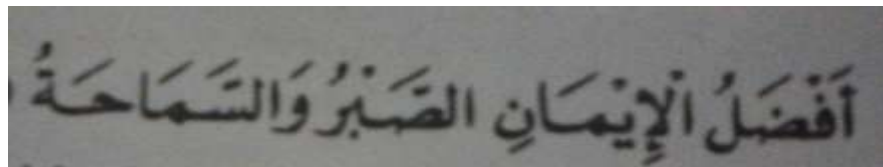 أَفْضَلُ الْإِيْمَانِ الصَّبْرُ وَالسَّمَاحَةُ